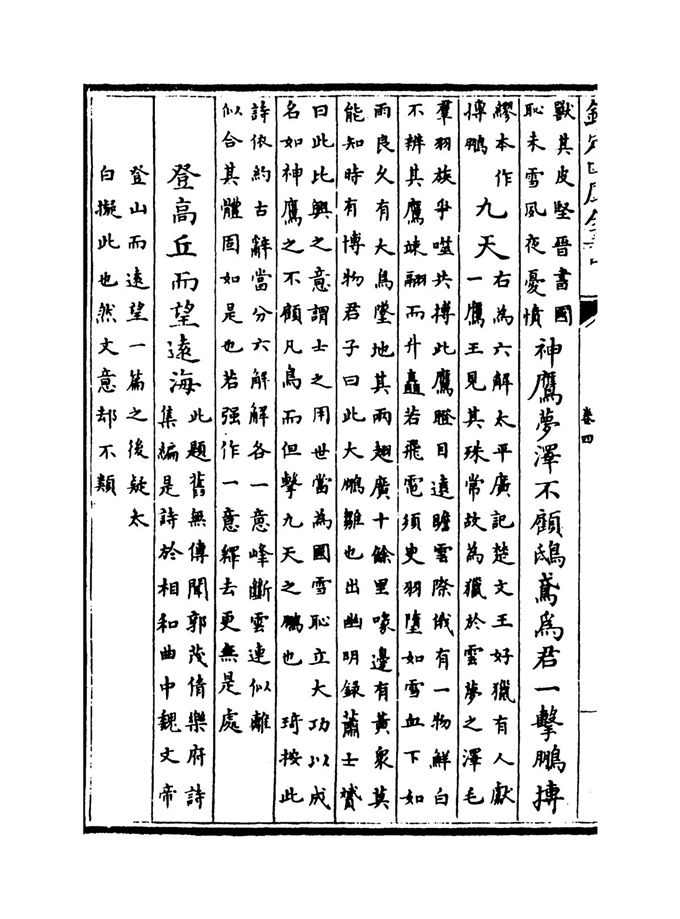 欽定四庫全書
卷四
獸其皮堅晉書國
恥未雪風夜憂憤
神鷹夢澤不顧鴟鳶為君一擊鵬摶
繆本作
摶鵬
九天
右為六解太平廣記楚文王好獵有人獻
一鷹王見其殊常故為獵於雲夢之澤毛
羣羽族爭噬共搏此鷹瞪目遠瞻雲際俄有一物鮮白
不辨其鷹竦翮而升矗若飛電須史羽墮如雪血下如
雨良久有大鳥墮地其兩翅廣十餘里喙邊有黃衆莫
能知時有博物君子曰此大鵬雛也出幽明錄蕭士贇
曰此比興之意謂士之用世當為國雪恥立大功以成
名如神鷹之不顧凡鳥而但擊九天之鵬也 琦按此
詩依約古辭當分六解解各一意峰斷雲連似離
似合其體固如是也若强作一意釋去更無是處
登高丘而望遠海
此題舊無傳聞郭茂倩樂府詩
集編是詩於相和曲中魏文帝
登山而遠望一篇之後疑太
白擬此也然文意却不類